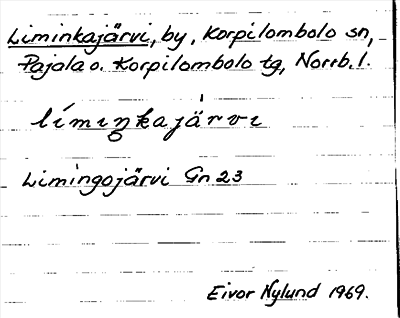 Liminkajärvi, by, Korpilombolo sn,
Pajala o. Korpilombolo tg, Norrb. l.
límiŋkajä̀rvi
Limingojärvi Gn 23
Eivor Nylund 1969.